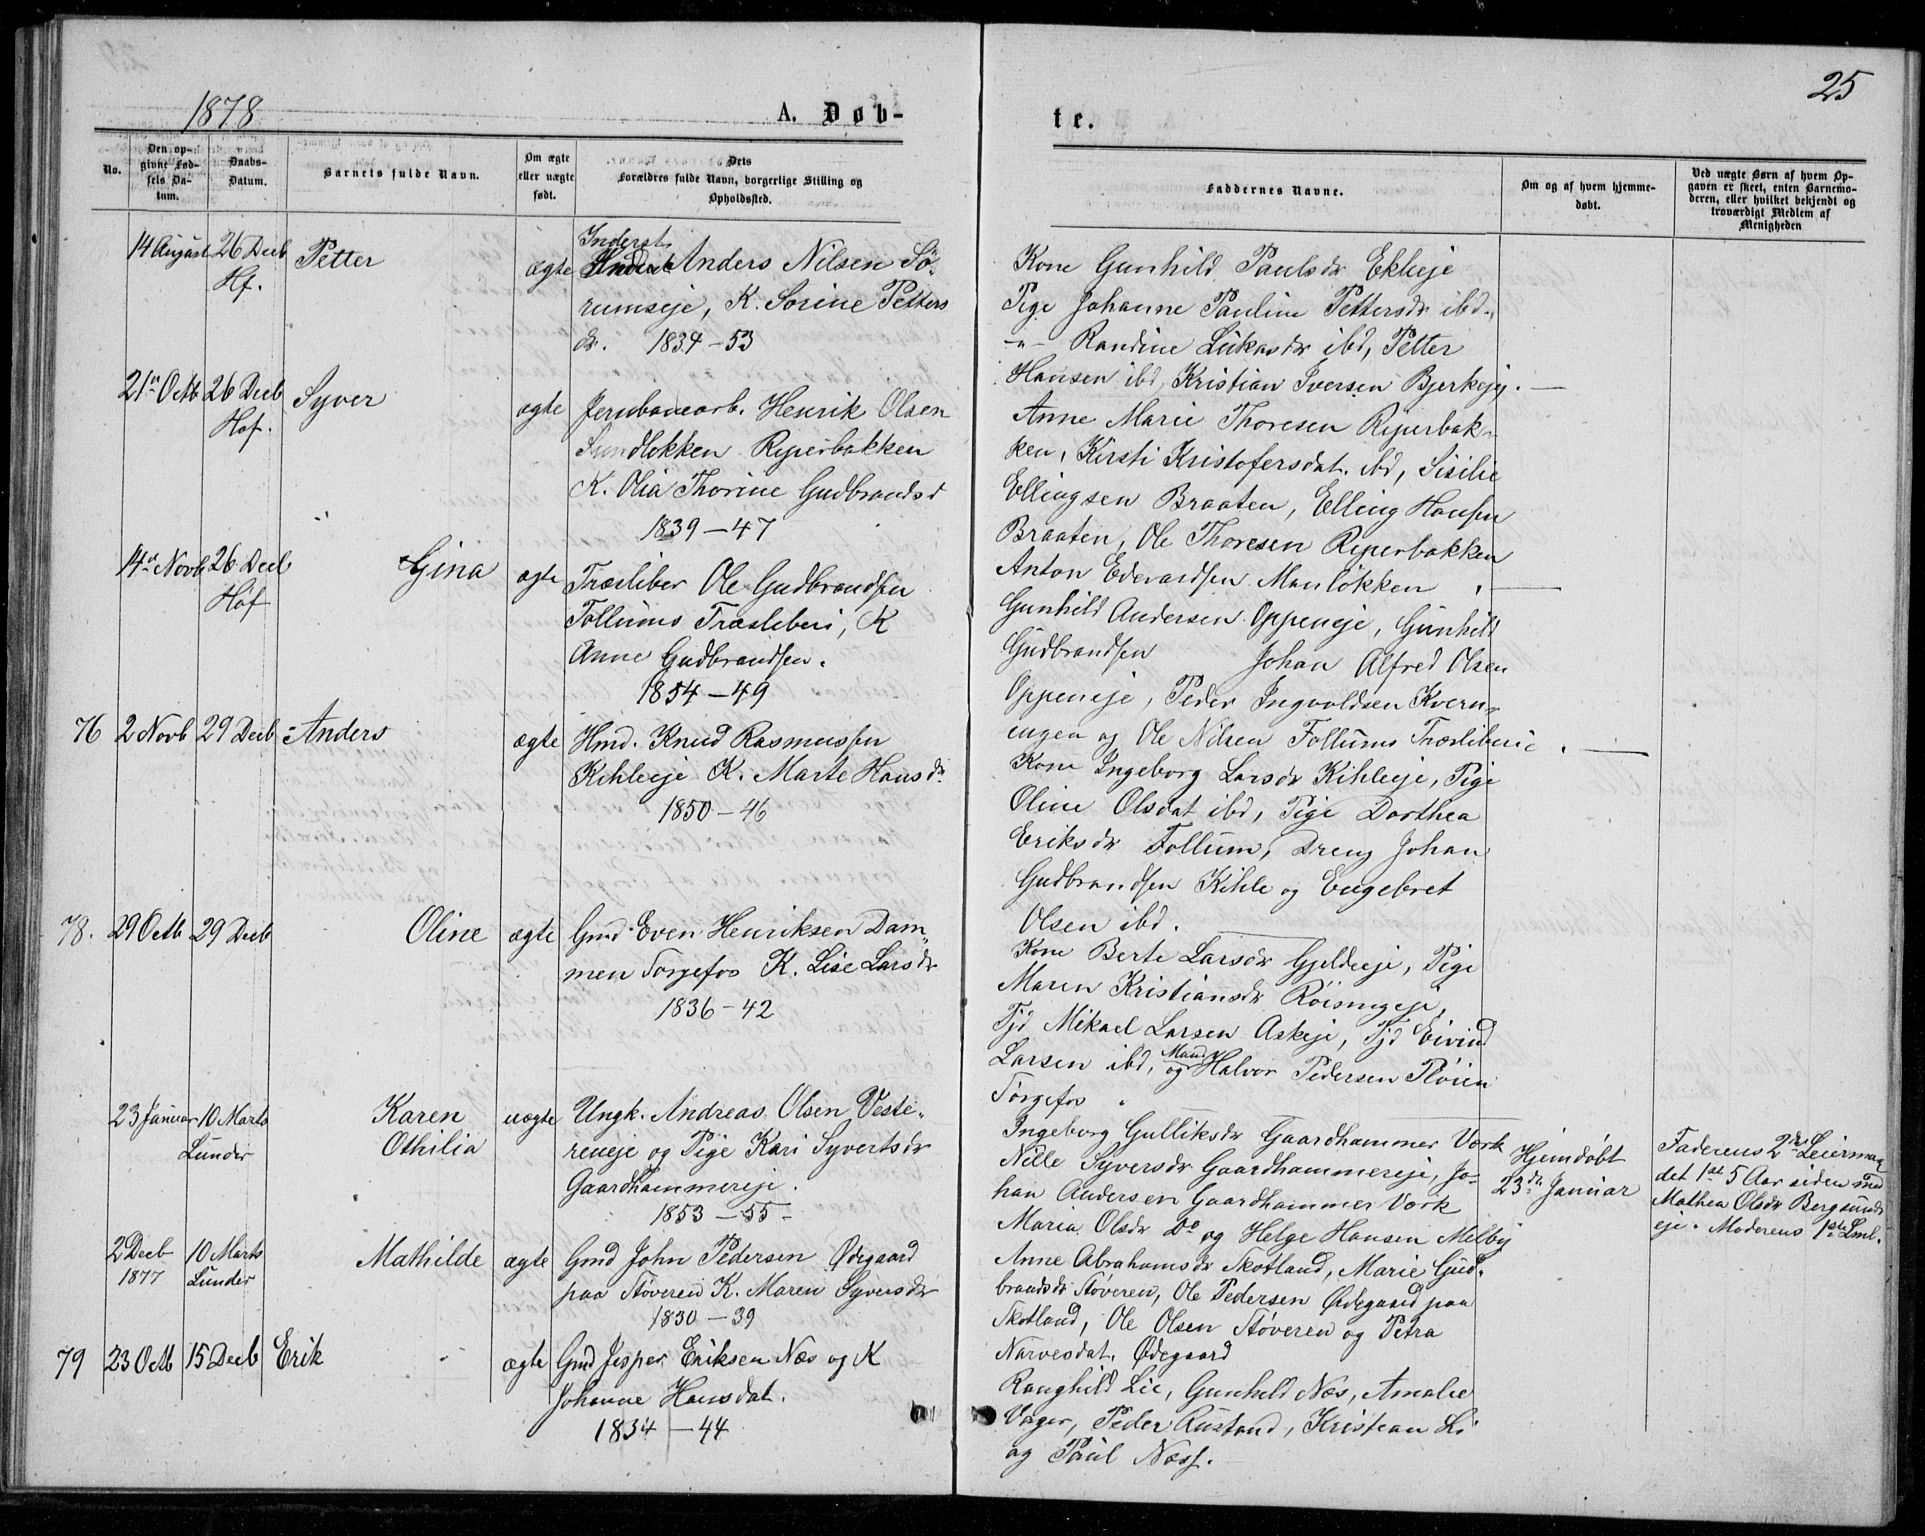 25
1878
A. Døb-
te.
No.
Den op-
givne Fød-
sels Da-
tum.
Daabs-
Datum.
Barnets fulde Navn.
Om ægte
eller uægte
født.
Dets
Forældres fulde Navn, borgerlige Stilling og
Opholdssted.
Faddernes Navne.
Om og af hvem hjemme-
døbt.
Ved uægte Børn af hvem Op-
gaven er skeet, enten Barnemo-
deren, eller hvilket bekjendt og
troværdigt Medlem af
Menigheden
14 August 26 Decb Petter ægte
Hf.
Inderst
Anders Nilsen Sö-
rumseje, K. Sorine Petters
dr. 1834-53
Kone Gunhild Paulsdr Ekleje
Pige Johanne Pauline Pettersdr ibd.,
-"- Randine Lukasdr ibd, Petter
Hansen ibd, Kristian Iversen Bjerkejy.
21de Octb 26 Decb Syver ægte
Hof.
Jernbanearb. Henrik Olsen
Sundlökken Ryperbakken
K. Olia Thorine Gudbrandsd
1839-47
Anne Marie Thoresen Ryperbak-
ken, Kirsti Kristofersdat. ibd, Sisilie
Ellingsen Braaten, Elling Hansen
Braaten, Ole Thoresen Ryperbakken
Anton Edvardsen Manlökken
14de Novb 26 Decb Gina ægte
Hof
Træsliber Ole Gudbrandsen
Follums Træsleberi, K
Anne Gudbrandsen.
1854-49
Gunhild Andersen Oppeneje, Gunhild
Gudbrandsen Johan Alfred Olsen
Oppeneje, Peder Ingvoldsen Kvern-
engen og Ole Nilsen Follums Træsliberie
76 2 Novb 29 Decb Anders ægte
Hmd. Knud Rasmussen
Kihleeje K. Marte Hansdr
1850-46
Kone Ingeborg Larsdr Kihleeje, Pige
Oline Olsdat ibd, Pige Dorthea
Eriksdr Follum, Dreng Johan
Gudbrandsen Kihle og Engebret
Olsen ibd.
78. 29 Octb 29 Decb Oline ægte
Gmd. Even Henriksen Dam-
men Torgefos K. Lise Larsdr
1836-42
Kone Berte Larsdr Gjeldeeje, Pige
Maren Kristiansdr
Tjd Mikael Larsen Askeje, Tjd Eivind
Larsen ibd, og Mand Halvor Pedersen Pløien
Torgefos.
23 Januar 10 Marts Karen uægte
Lunder Othilia
Ungk. Andreas Olsen Veste-
reneje og Pige Kari Syvertsdr
Gaardhammereje.
1853-55-
Ingeborg Gulliksdr Gaardhammer Værk
Nille Syversdr Gaardhammereje, Jo-
han Andersen Gaardhammer Værk
Maria Olsdr Do og Helge Hansen Melby
Hjemdøbt
23de Januar
Faderens 2den Leiermaal
det 1ste 5 Aar siden med
Mathea Olsdr Bergsunds
eje. Moderens 1ste Lml.
2 Decb 10 Marts Mathilde ægte
1877 Lunder
Gmd John Pedersen Ødegaard
paa Støveren K. Maren Syversdr
1830-39
Anne Abrahamsdr Skotland, Marie Gud-
brandsdr Støveren, Ole Pedersen Ødegaard paa
Skotland, Ole Olsen Støveren og Petra
Narvesdat. Ødegaard
79 23 Octb 15 Decb Erik ægte
Gmd Jesper Eriksen Næs og K
Johanne Hansdat.
1834-44
Ranghild Lie, Gunhild Næs, Amalie
Vager, Peder Rustand, Kristian Li
og Paul Næss.